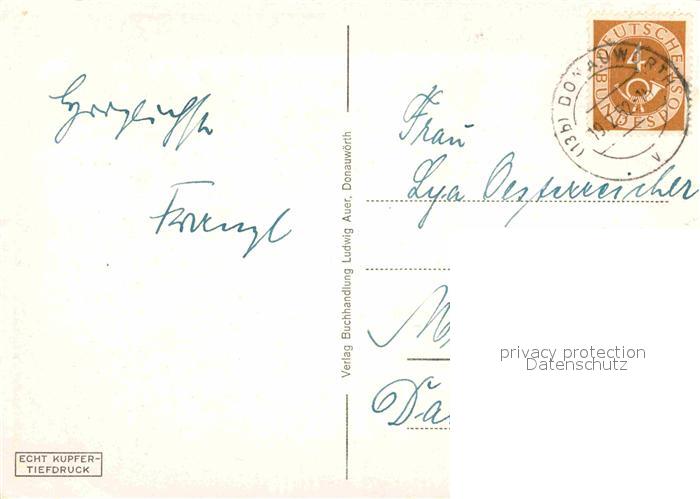 Herzlichst
Franzl
ECHT KUPFER-
TIEFDRUCK
Verlag Buchhandlung Ludwig Auer, Donauwörth
DEUTSCHE
BUNDESPOST
4
(13b) DONAUWÖRTH
v
Frau
Lya Oesterreicher
M
Da
privacy protection
Datenschutz